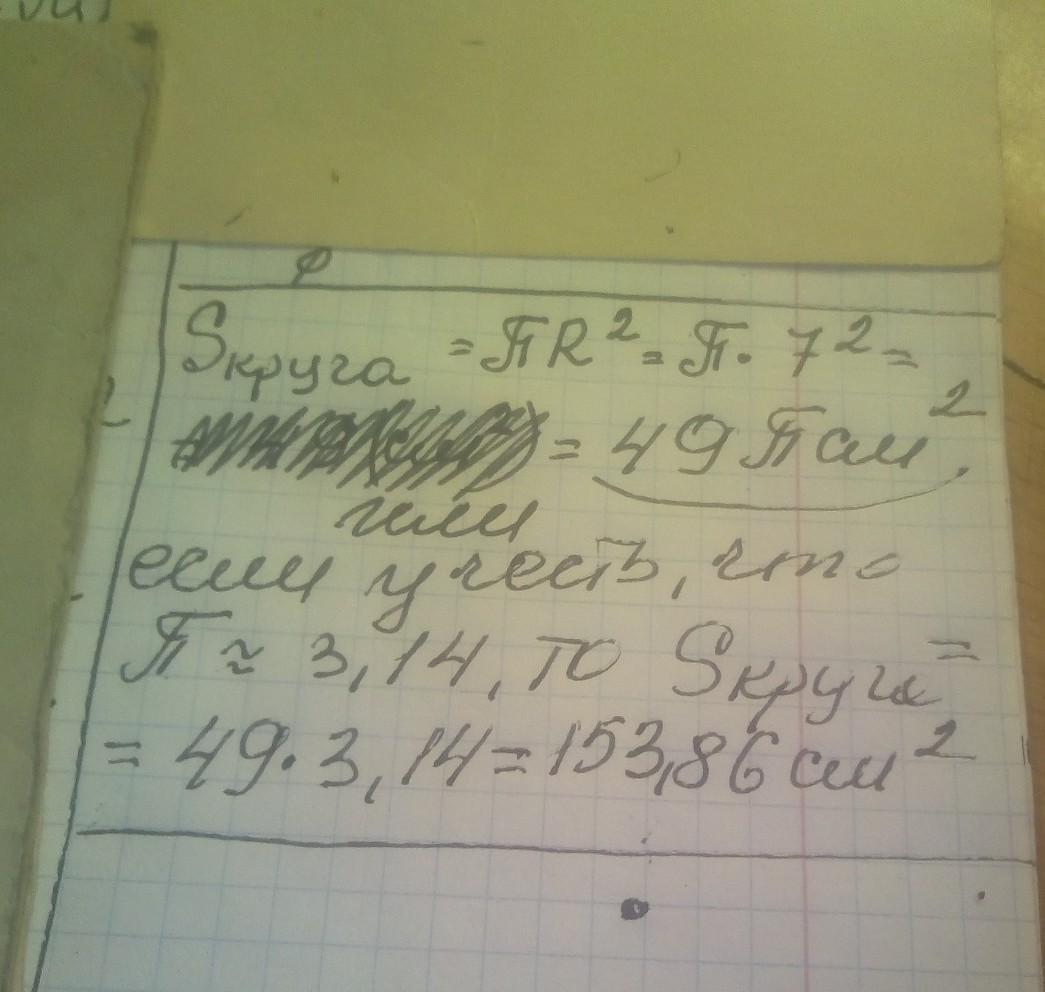 Sкруга = πR² = π · 7² =
= 49 π см².
или
если учесть, что
π ≈ 3,14, то Sкруга =
= 49 · 3,14 = 153,86 см²